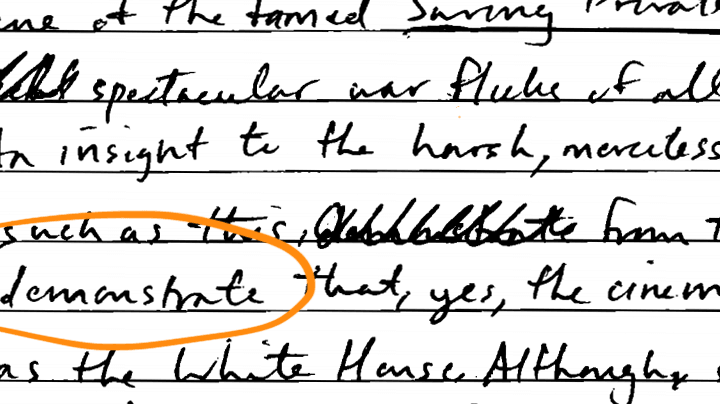 of the famed Saving Private
spectacular war flicks of all
insight to the harsh, merciless
such as this, from
demonstrate that, yes, the cinem
as the White House. Although,